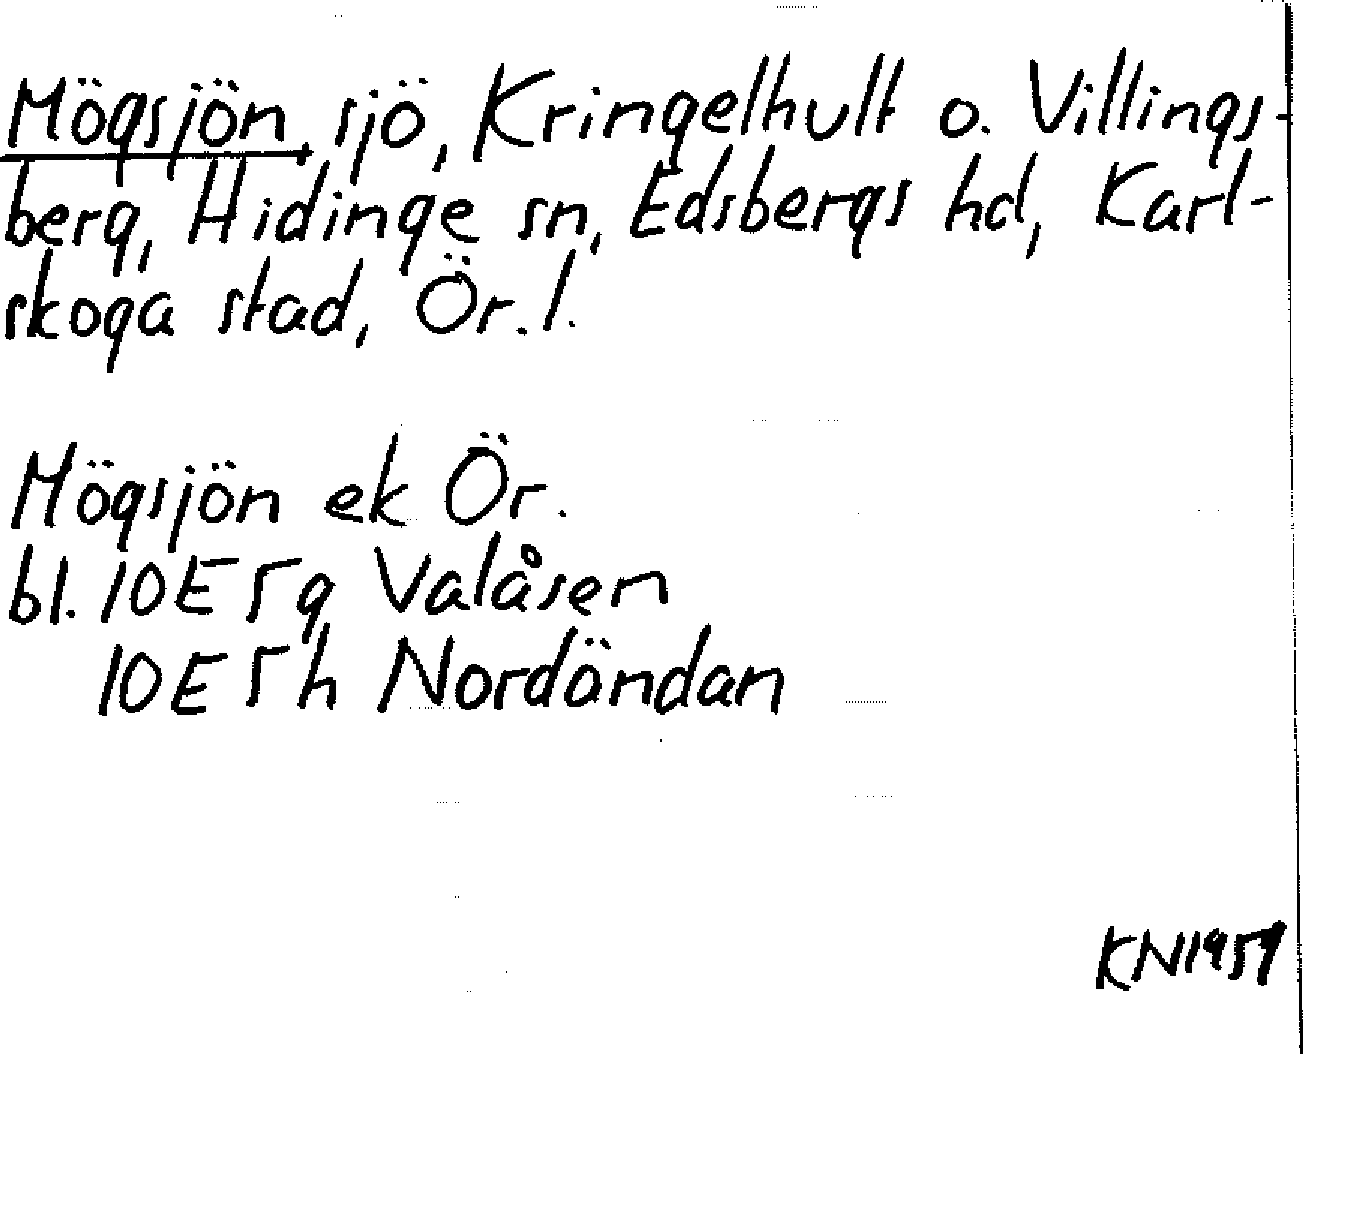 Mögsjön, sjö, Kringelhult o. Villings-
berg, Hidinge sn, Edsbergs hd, Karl-
skoga stad, Ör. l.
Mögsjön ek Ör.
bl. 10E 5g Valåsen
10E 5h Nordöndan
KN1957